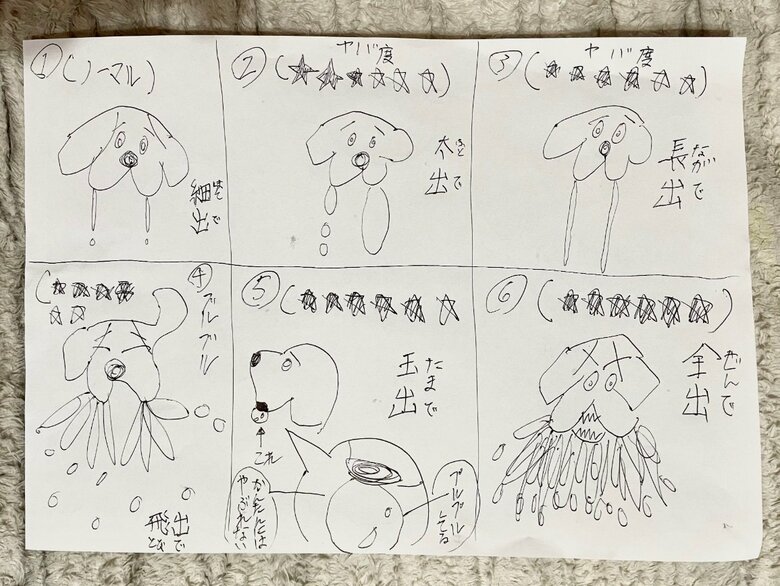 ①(ノーマル)
細出
ほそで
②
ヤバ度
(★★☆☆☆☆)
太出
ふとで
③
ヤバ度
(★★★☆☆☆)
長出
ながで
④
(★★★★
☆☆)
ブルブル
飛出
とびで
⑤(★★★★★☆)
玉出
たまで
↑
これ
かんたんには
やぶれない
プルプル
してる
⑥(★★★★★★)
全出
ぜんで